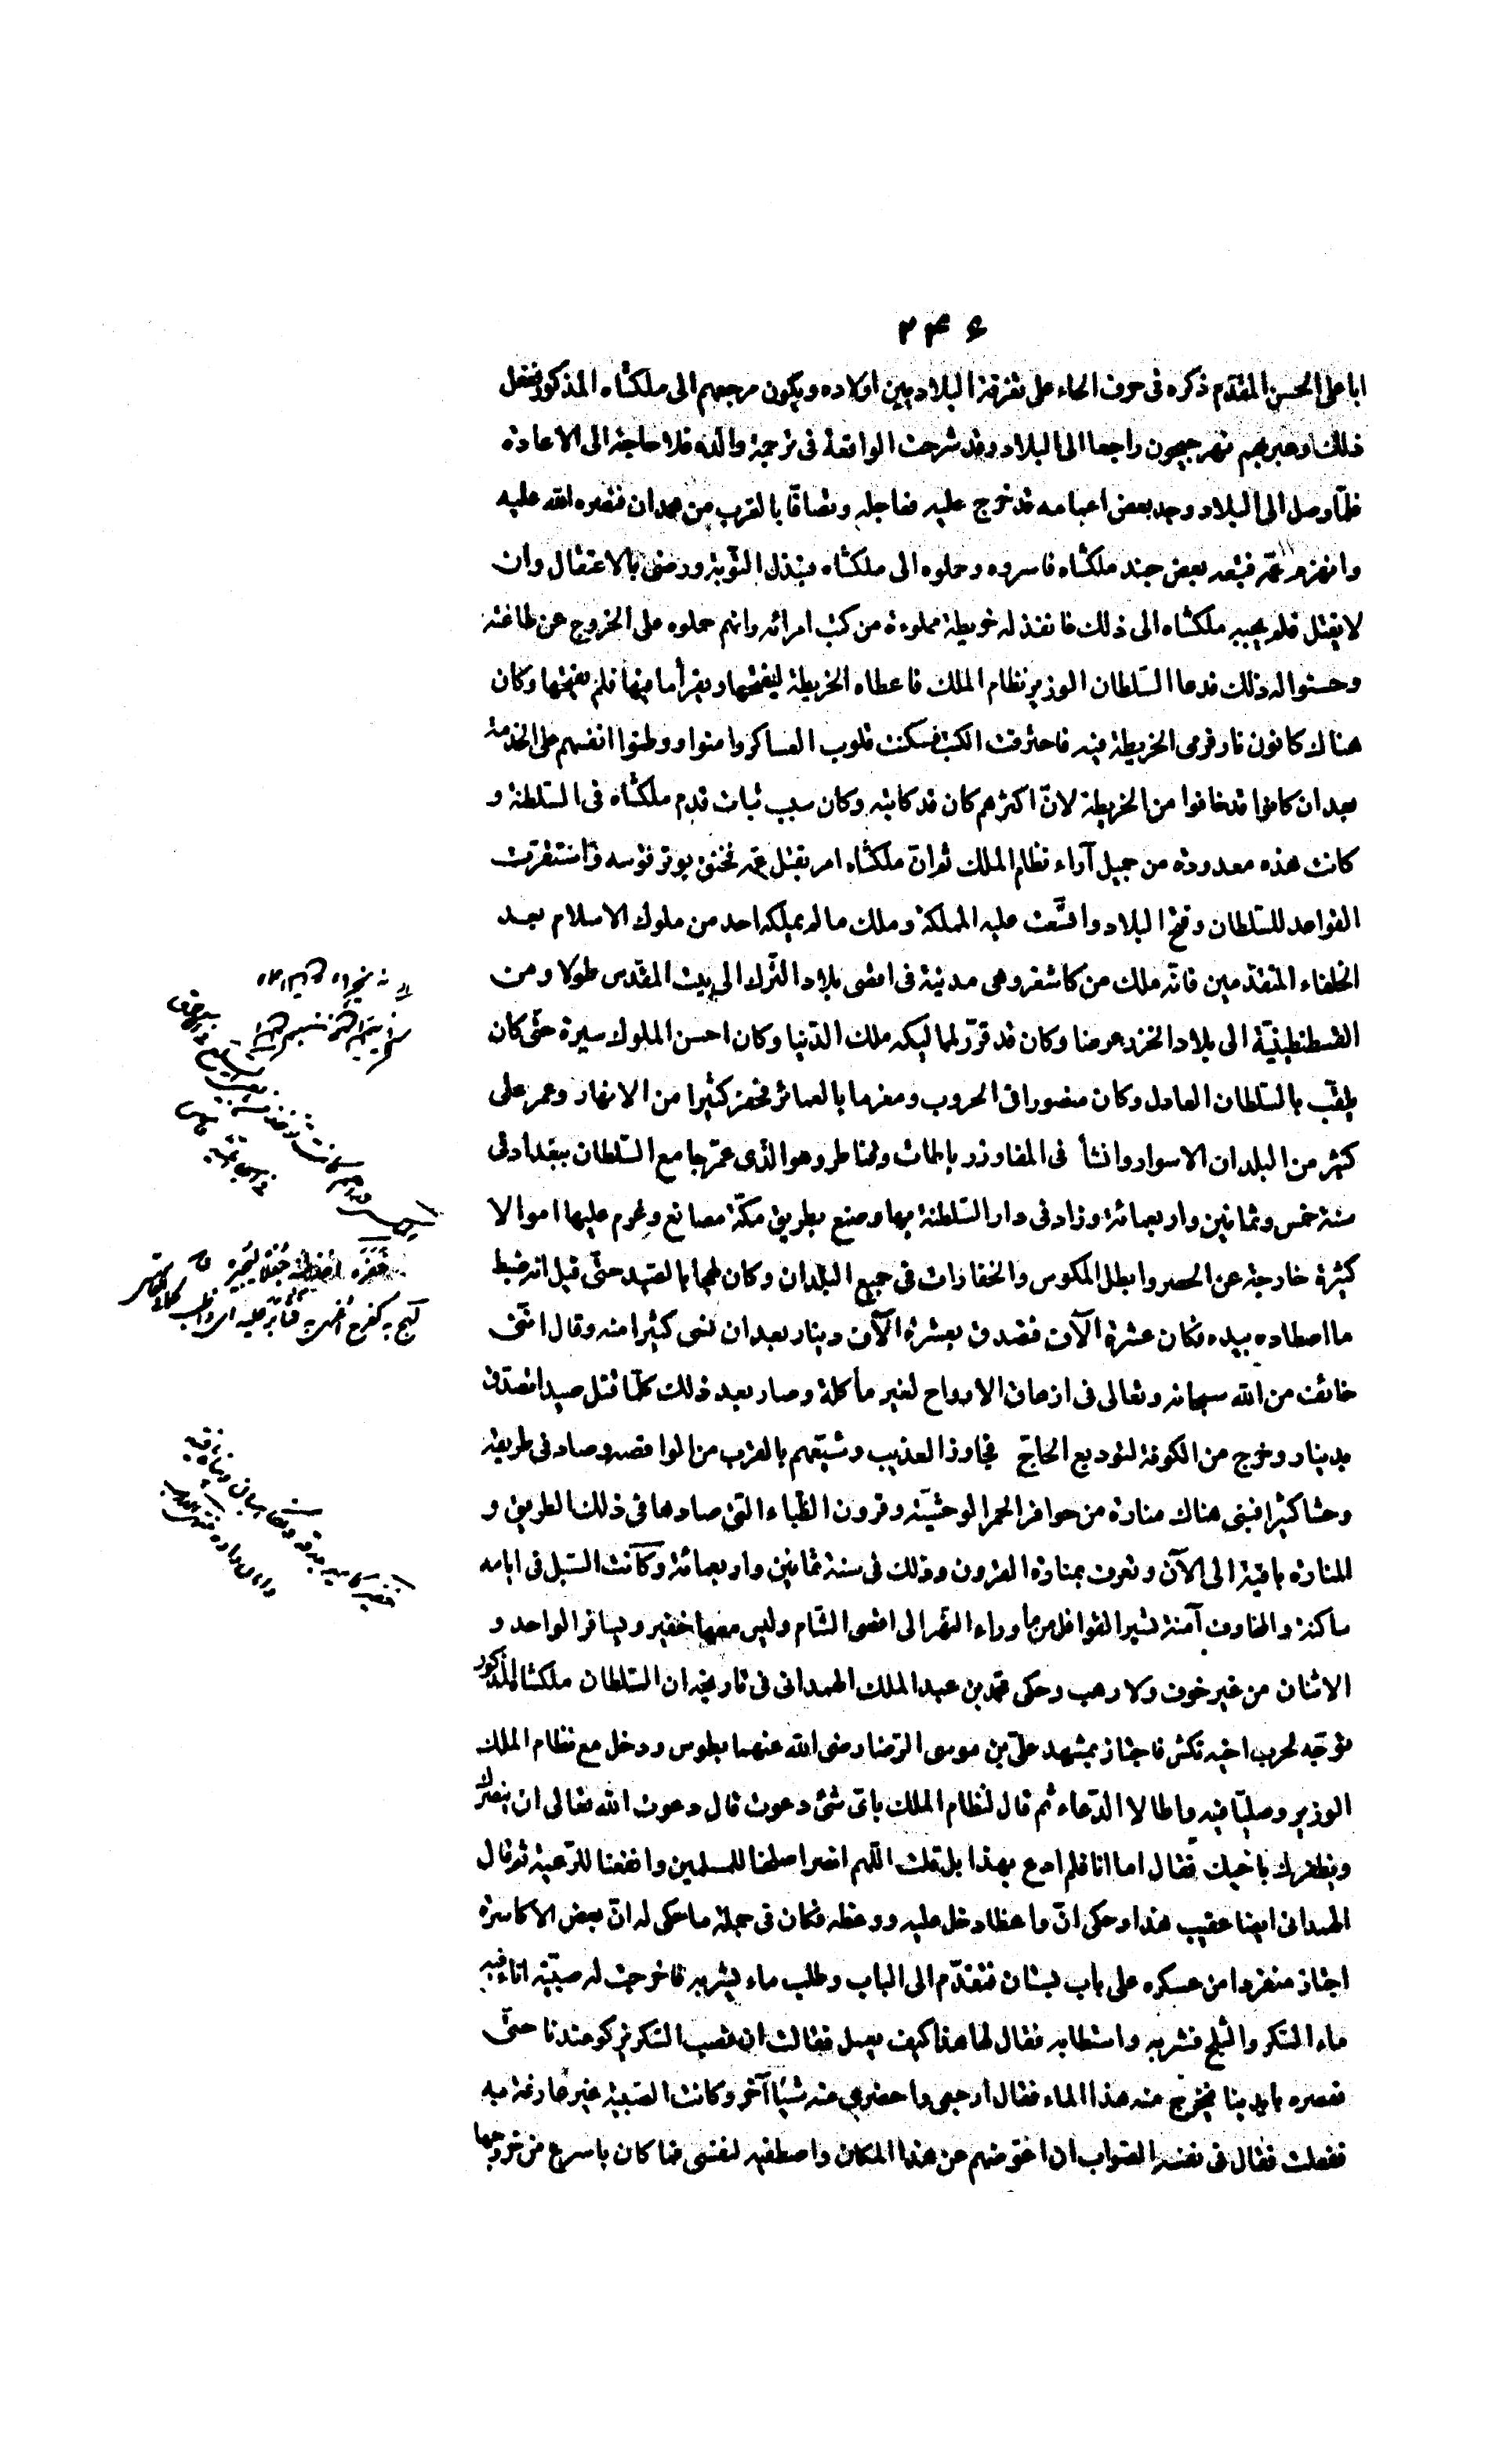 ٢٤٦
ابا على الحسن المقدم ذكره فى حرف الحاء على تفرقة البلاد بين اولاده ويكون مرجعهم الى ملكشاه المذكور ففعل
ذلك وعبر بهم نهر جيحون راجعا الى البلاد وقد شرحت الواقعة فى ترجمة والده فلا حاجة الى الاعادة
فلمّا وصل الى البلاد وجد بعض اعمامه قد خرج عليه فعاجله وتصافّا بالقرب من همدان فنصره الله عليه
وانهزم عمّه فتبعه بعض جند ملكشاه فاسروه وحملوه الى ملكشاه فبذل التّوبة ورضى بالاعتقال وان
لا يقتل فلم يجبه ملكشاه الى ذلك فانفذ له خريطة مملوءة من كتب امرائه وانهم حملوه على الخروج عن طاعته
وحسنوا له ذلك فدعا السّلطان الوزير نظام الملك فاعطاه الخريطة ليفتحها ويقرأ ما فيها فلم يفتحها وكان
هناك كانون نار فرمى الخريطة فيه فاحترقت الكتب فسكنت قلوب العساكر وامنوا ووطنوا انفسهم على الخدمة
بعد ان كانوا قد خافوا من الخريطة لانّ اكثرهم كان قد كاتبه وكان سبب ثبات قدم ملكشاه فى السّلطنة و
كانت هذه معدودة من جميل آراء نظام الملك ثم انّ ملكشاه امر بقتل عمّه فخنق بوتر قوسه واستقرّت
القواعد للسّلطان وفتح البلاد واتّسعت عليه المملكة وملك ما لم يملكه احد من ملوك الاسلام بعد
الخلفاء المتقدّمين فانّه ملك من كاشغر وهى مدينة فى اقصى بلاد التّرك الى بيت المقدس طولا ومن
القسطنطينيّة الى بلاد الخزر عرضا وكان قد قرّر لماليكه ملك الدّنيا وكان احسن الملوك سيرة حتّى كان
يلقّب بالسّلطان العادل وكان منصورا فى الحروب ومغرما بالعمائر فحفر كثيرا من الانهار وعمر على
كثير من البلدان الاسوار وانشأ فى المفاوز رباطات وقناطر وهو الّذى عمّر جامع السّلطان ببغداد فى
سنة خمس وثمانين واربعمائة وزاد فى دار السّلطنة بها وصنع بطريق مكّة مصانع وغرم عليها اموالا
كثيرة خارجة عن الحصر وابطل المكوس والخفارات فى جميع البلدان وكان لهجا بالصّيد حتّى قيل انه ضبط
ما اصطاده بيده فكان عشرة آلاف فتصدق بعشرة آلاف دينار بعد ان نسى كثيرا منه وقال انّنى
خائف من الله سبحانه وتعالى فى ازهاق الارواح لغير مأكلة وصار بعد ذلك كلّما قتل صيدا تصدّق
بدينار وخرج من الكوفة لتوديع الحاجّ فجاوز العذيب وشيّعهم بالقرب من الواقصه وصاد فى طريقه
وحشا كثيرا فبنى هناك منارة من حوافر الحمر الوحشيّة وقرون الظّباء الّتى صادها فى ذلك الطريق و
المنارة باقية الى الآن وتعرف بمنارة القرون وذلك فى سنة ثمانين واربعمائة وكانت السّبل فى ايامه
ساكنة والمخاوف آمنة تسير القوافل من ما وراء النّهر الى اقصى الشّام وليس معها خفير ويسافر الواحد و
الاثنان من غير خوف ولا رهب وحكى محمد بن عبد الملك الهمدانى فى تاريخه ان السّلطان ملكشاه المذكور
توجّه لحرب اخيه تكش فاجتاز بمشهد علىّ بن موسى الرّضا رضى الله عنهما بطوس ودخل مع نظام الملك
الوزير وصليّا فيه واطالا الدّعاء ثم قال لنظام الملك باىّ شئ دعوت قال دعوت الله تعالى ان ينصرك
ويظفرك باخيك فقال اما انا فلم ادع بهذا بل قلت اللّهم انصر اصلحنا للمسلمين وانفعنا للرّعية ثم قال
الهمدانى ايضا عقيب هذا وحكى انّ واعظا دخل عليه ووعظه فكان فى جملة ما حكى له انّ بعض الاكاسرة
اجتاز منفردا من عسكره على باب بستان فتقدّم الى الباب وطلب ماء يشربه فاخرجت له صبيّة اناء فيه
ماء السّكر والثّلج فشربه واستطابه فقال لها هذا كيف يعمل فقالت ان قصب السّكر يزكو عندنا حتّى
نعصره بايدينا فيخرج منه هذا الماء فقال ارجعى واحضرى منه شيئا آخر وكانت الصّبية غير عارفة به
ففعلت فقال فى نفسه الصّواب ان اعوّضهم عن هذا المكان واصطفيه لنفسى فما كان باسرع من خروجها